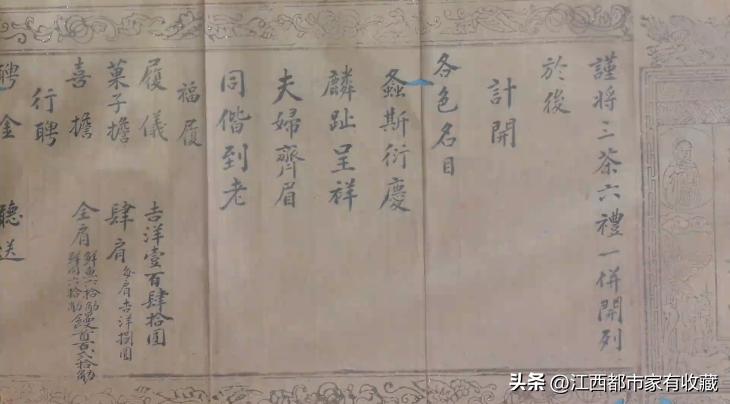 謹將三茶六禮一併開列
於後
計開
各色名目
螽斯衍慶
麟趾呈祥
夫婦齊眉
同偕到老
福履
履儀 吉洋壹百肆拾圓
菓子擔 肆肩 每肩吉洋捌圓
喜擔 全肩 鮮魚六拾觔 鮮肉六拾觔 饅首百弍拾觔
行聘
聘金 聽送
头条 @江西都市家有收藏